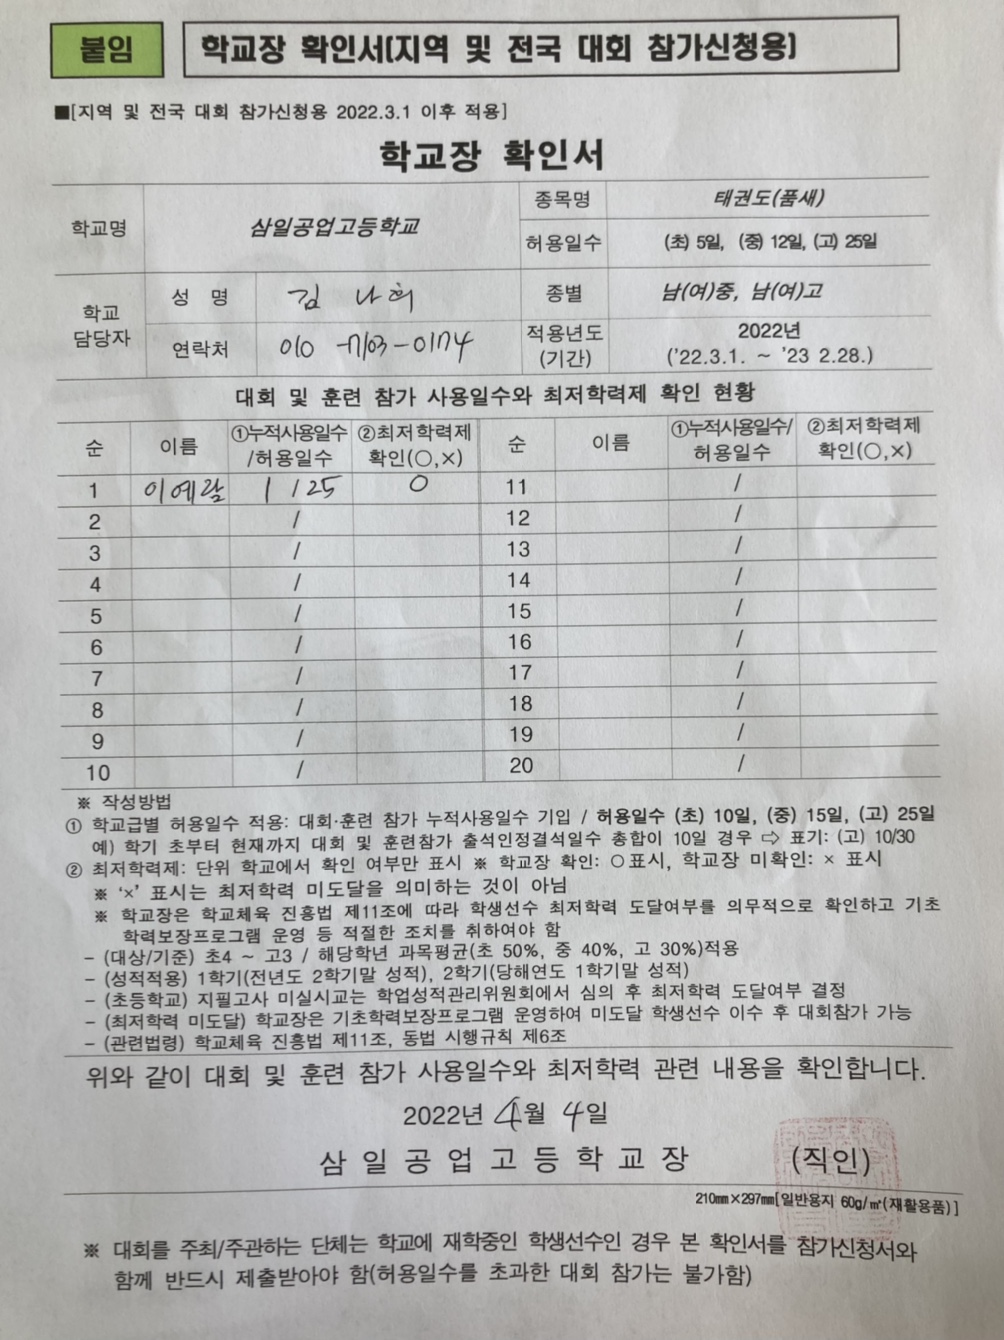 붙임
학교장 확인서(지역 및 전국 대회 참가신청용)
■[지역 및 전국 대회 참가신청용 2022.3.1 이후 적용]
학교장 확인서
학교명 삼일공업고등학교 종목명 태권도(품새)
허용일수 (초) 5일, (중) 12일, (고) 25일
학교 담당자 성 명 김 나희 종별 남(여)중, 남(여)고
연락처 010 -7103-0174 적용년도 (기간) 2022년 ('22.3.1. ~ '23 2.28.)
대회 및 훈련 참가 사용일수와 최저학력제 확인 현황
순 이름 ①누적사용일수/허용일수 ②최저학력제 확인(○,×) 순 이름 ①누적사용일수/허용일수 ②최저학력제 확인(○,×)
1 이예랑 1 / 25 ○ 11 /
2 / 12 /
3 / 13 /
4 / 14 /
5 / 15 /
6 / 16 /
7 / 17 /
8 / 18 /
9 / 19 /
10 / 20 /
※ 작성방법
① 학교급별 허용일수 적용: 대회·훈련 참가 누적사용일수 기입 / 허용일수 (초) 10일, (중) 15일, (고) 25일
예) 학기 초부터 현재까지 대회 및 훈련참가 출석인정결석일수 총합이 10일 경우 ⇨ 표기: (고) 10/30
② 최저학력제: 단위 학교에서 확인 여부만 표시 ※ 학교장 확인: ○표시, 학교장 미확인: × 표시
※ '×' 표시는 최저학력 미도달을 의미하는 것이 아님
※ 학교장은 학교체육 진흥법 제11조에 따라 학생선수 최저학력 도달여부를 의무적으로 확인하고 기초
학력보장프로그램 운영 등 적절한 조치를 취하여야 함
- (대상/기준) 초4 ~ 고3 / 해당학년 과목평균(초 50%, 중 40%, 고 30%)적용
- (성적적용) 1학기(전년도 2학기말 성적), 2학기(당해연도 1학기말 성적)
- (초등학교) 지필고사 미실시교는 학업성적관리위원회에서 심의 후 최저학력 도달여부 결정
- (최저학력 미도달) 학교장은 기초학력보장프로그램 운영하여 미도달 학생선수 이수 후 대회참가 가능
- (관련법령) 학교체육 진흥법 제11조, 동법 시행규칙 제6조
위와 같이 대회 및 훈련 참가 사용일수와 최저학력 관련 내용을 확인합니다.
2022년 4월 4일
삼 일 공 업 고 등 학 교 장 (직인)
210㎜×297㎜[일반용지 60g/㎡(재활용품)]
※ 대회를 주최/주관하는 단체는 학교에 재학중인 학생선수인 경우 본 확인서를 참가신청서와
함께 반드시 제출받아야 함(허용일수를 초과한 대회 참가는 불가함)